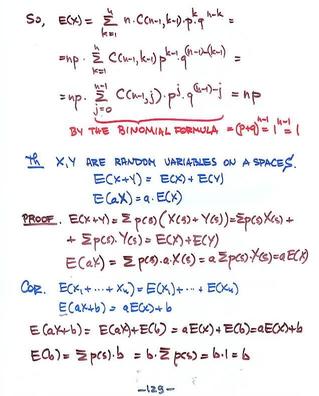 So, E(X) = Σ_{k=1}^{n} n·C(n-1,k-1)·p^k·q^{n-k} =
= np · Σ_{k=1}^{n} C(n-1,k-1) p^{k-1}·q^{(n-1)-(k-1)} =
= np · Σ_{j=0}^{n-1} C(n-1,j)·p^j·q^{(n-1)-j} = np
BY THE BINOMIAL FORMULA = (p+q)^{n-1} = 1^{n-1} = 1
Th X,Y ARE RANDOM VARIABLES ON A SPACE S.
E(X+Y) = E(X) + E(Y)
E(aX) = a·E(X)
PROOF. E(X+Y) = Σ p(s) (X(s) + Y(s)) = Σ p(s) X(s) +
+ Σ p(s)·Y(s) = E(X) + E(Y)
E(aX) = Σ p(s)·a·X(s) = a Σ p(s)·X(s) = aE(X)
COR. E(X₁+···+Xₙ) = E(X₁)+···+E(Xₙ)
E(aX+b) = aE(X)+b
E(aX+b) = E(aX)+E(b) = aE(X)+E(b) = aE(X)+b
E(b) = Σ p(s)·b = b·Σ p(s) = b·1 = b
-129-